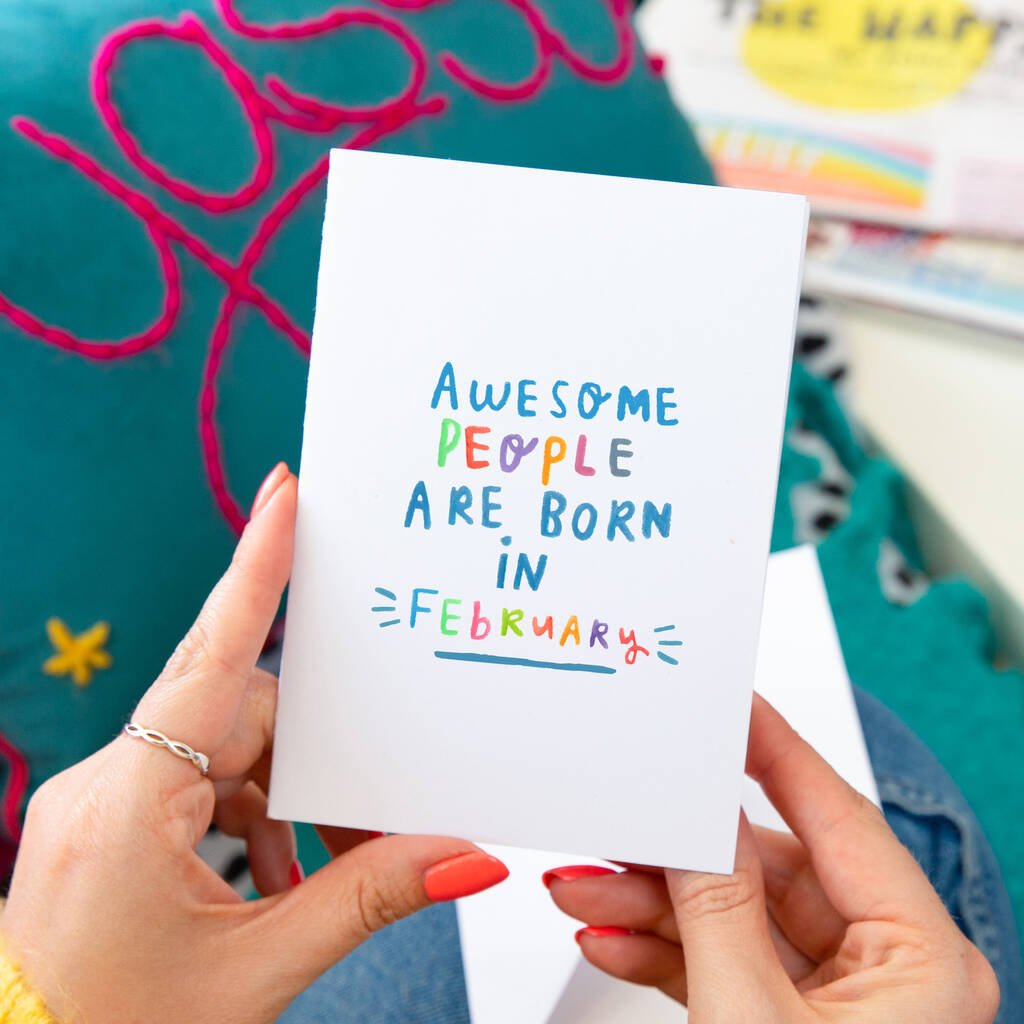 THE HAPP
AWESOME
PEOPLE
ARE BORN
iN
FEbRUARy